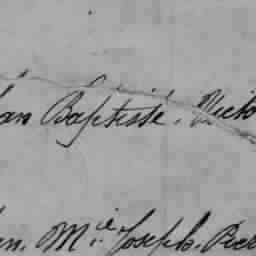 an Baptiste, Victo
n. M.ie Joseph. Pier